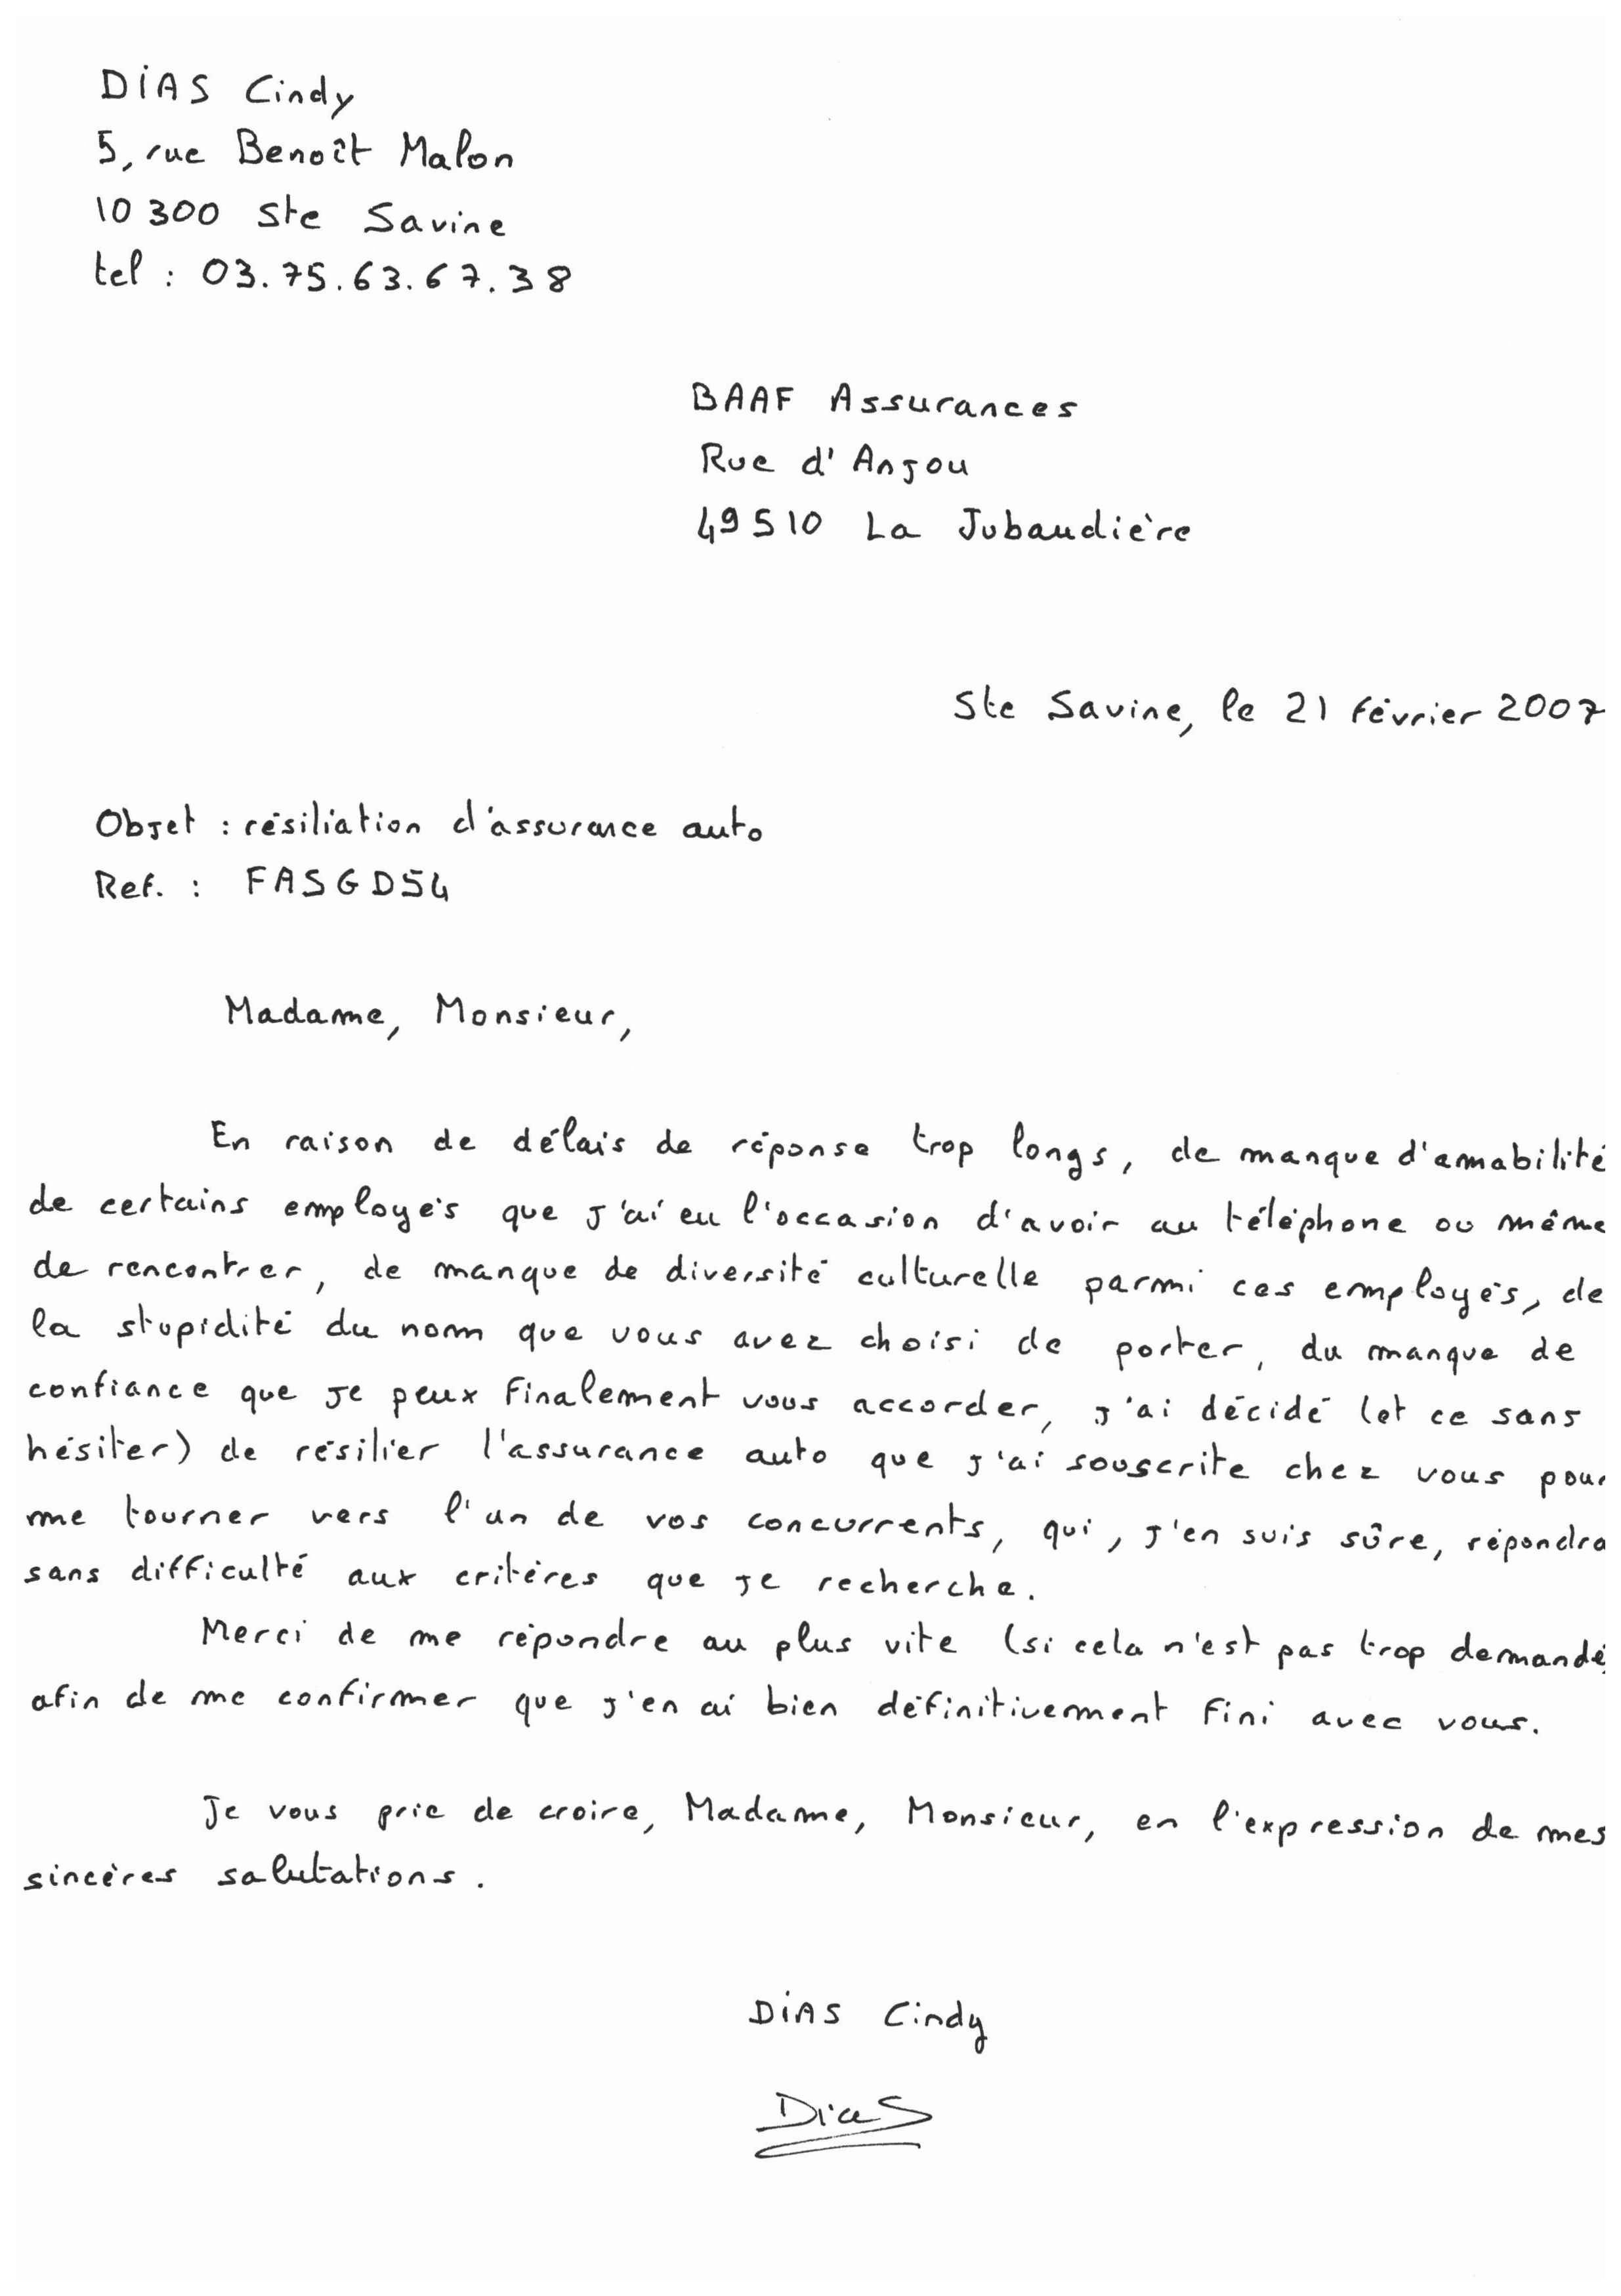 DIAS Cindy
5, rue Benoît Malon
10 300 Ste Savine
tel : 03.75.63.67.38
BAAF Assurances
Rue d'Anjou
49510 La Jubaudière
Ste Savine, le 21 février 2007
Objet : résiliation d'assurance auto
Ref. : FASGD54
Madame, Monsieur,
En raison de délais de réponse trop longs, de manque d'amabilité
de certains employés que j'ai eu l'occasion d'avoir au téléphone ou même
de rencontrer, de manque de diversité culturelle parmi ces employés, de
la stupidité du nom que vous avez choisi de porter, du manque de
confiance que je peux finalement vous accorder, j'ai décidé (et ce sans
hésiter) de résilier l'assurance auto que j'ai souscrite chez vous pour
me tourner vers l'un de vos concurrents, qui, j'en suis sûre, répondra
sans difficulté aux critères que je recherche.
Merci de me répondre au plus vite (si cela n'est pas trop demandé)
afin de me confirmer que j'en ai bien définitivement fini avec vous.
Je vous prie de croire, Madame, Monsieur, en l'expression de mes
sincères salutations.
DIAS Cindy
Dias